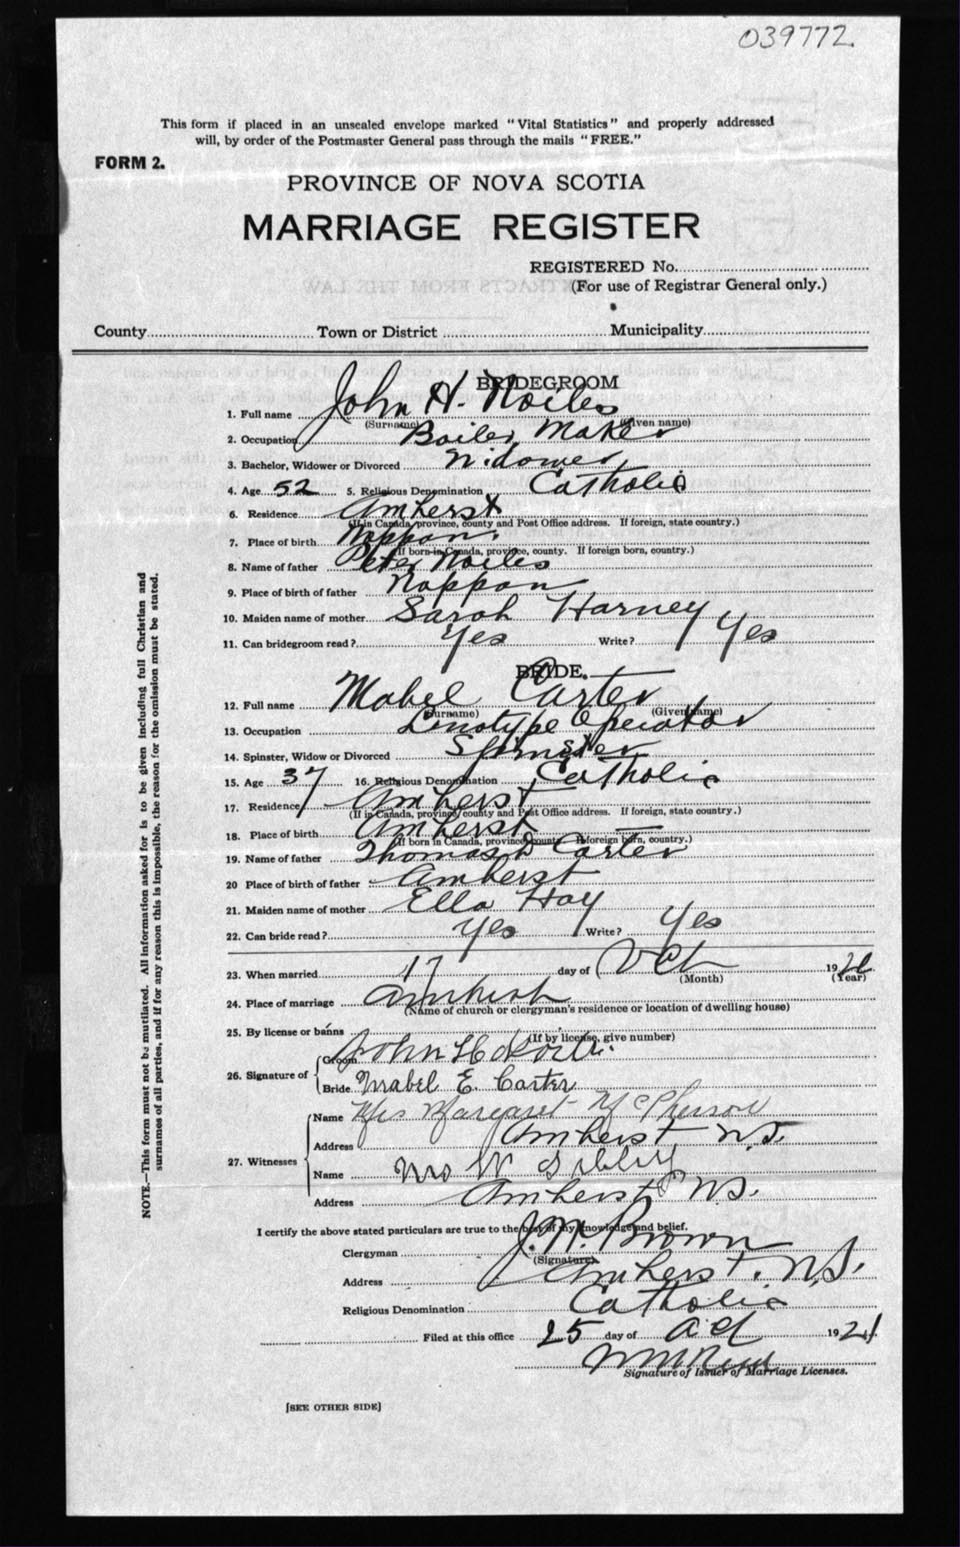 039772.
This form if placed in an unsealed envelope marked "Vital Statistics" and properly addressed
will, by order of the Postmaster General pass through the mails "FREE."
FORM 2.
PROVINCE OF NOVA SCOTIA
MARRIAGE REGISTER
REGISTERED No.
(For use of Registrar General only.)
County Town or District Municipality
BRIDEGROOM
1. Full name John H. Noiles
(Surname) (Given name)
2. Occupation Boiler Maker
3. Bachelor, Widower or Divorced Widower
4. Age 52 5. Religious Denomination Catholic
6. Residence Amherst
(If in Canada, province, county and Post Office address. If foreign, state country.)
7. Place of birth Nappan.
(If born in Canada, province, county. If foreign born, country.)
8. Name of father Peter Noiles
9. Place of birth of father Nappan
10. Maiden name of mother Sarah Harney
11. Can bridegroom read? Yes Write? Yes
BRIDE.
12. Full name Mabel Carter
(Surname) (Given name)
13. Occupation Linotype Operator
14. Spinster, Widow or Divorced Spinster
15. Age 37 16. Religious Denomination Catholic
17. Residence Amherst
(If in Canada, province, county and Post Office address. If foreign, state country.)
18. Place of birth Amherst
(If born in Canada, province, county. If foreign born, country.)
19. Name of father Thomas D Carter
20 Place of birth of father Amherst
21. Maiden name of mother Ella Hay
22. Can bride read? Yes Write? Yes
23. When married 17 day of Oct 192
(Month) (Year)
24. Place of marriage Amherst
(Name of church or clergyman's residence or location of dwelling house)
25. By license or banns
(If by license, give number)
26. Signature of Groom John H Noiles
Bride Mabel E. Carter
27. Witnesses Name Mrs Margaret McPherson
Address Amherst N.S.
Name Mrs W Sibley
Address Amherst NS.
I certify the above stated particulars are true to the best of my knowledge and belief.
Clergyman J. W. Brown
(Signature)
Address Amherst. N.S.
Religious Denomination Catholic
Filed at this office 25 day of Oct 192
Signature of Issuer of Marriage Licenses.
[SEE OTHER SIDE]
NOTE.—This form must not be mutilated. All information asked for is to be given including full Christian and
surnames of all parties, and if for any reason this is impossible, the reason for the omission must be stated.